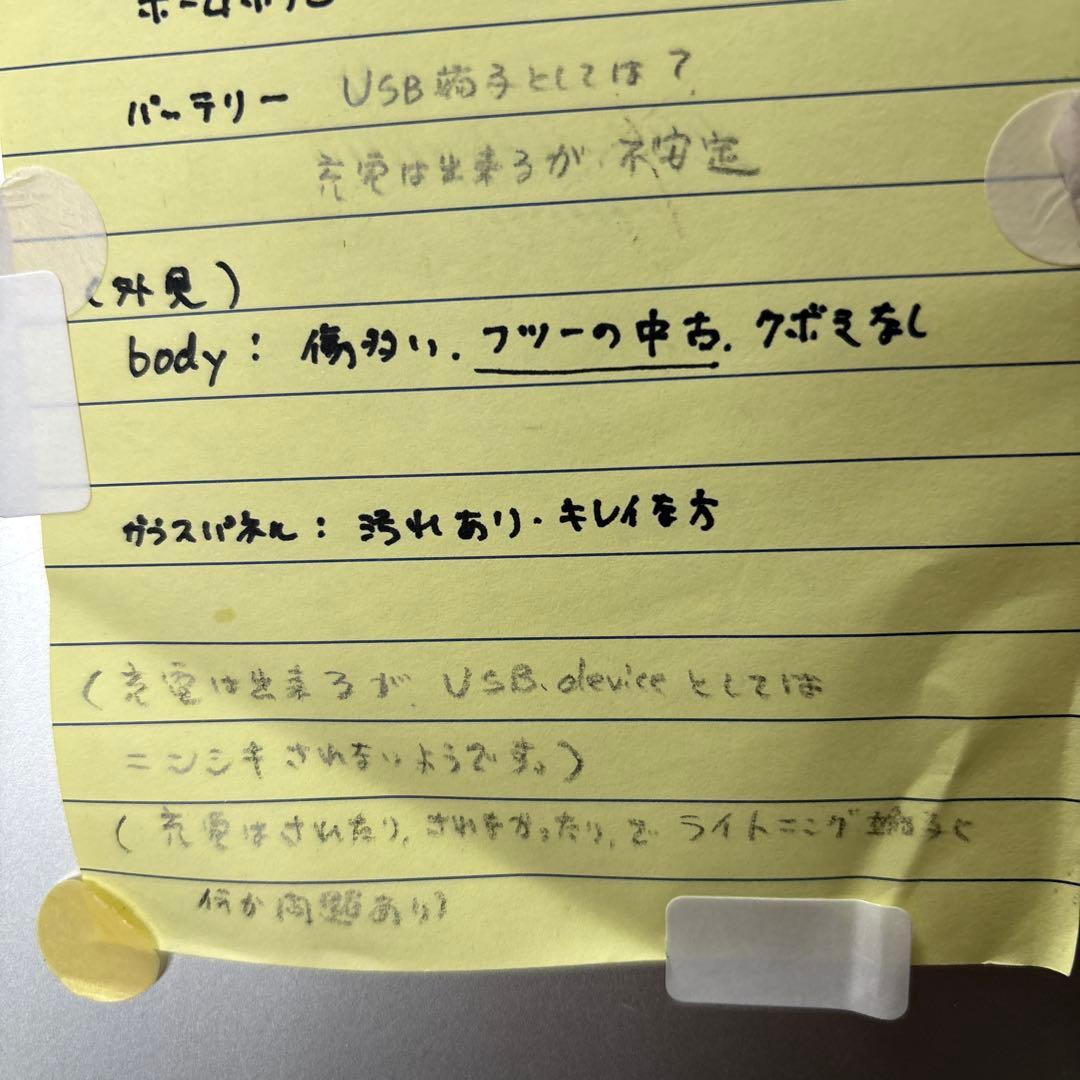 ホームボタン
バッテリー USB端子としては?
充電は出来るが、不安定
(外見)
body: 傷多い. フツーの中古. クボミなし
ガラスパネル: 汚れあり. キレイな方
(充電は出来るが、USB.deviceとしては
ニンシキされないようです。)
(充電はされたり,されなかったり,で ライトニング端子に
何か問題あり)